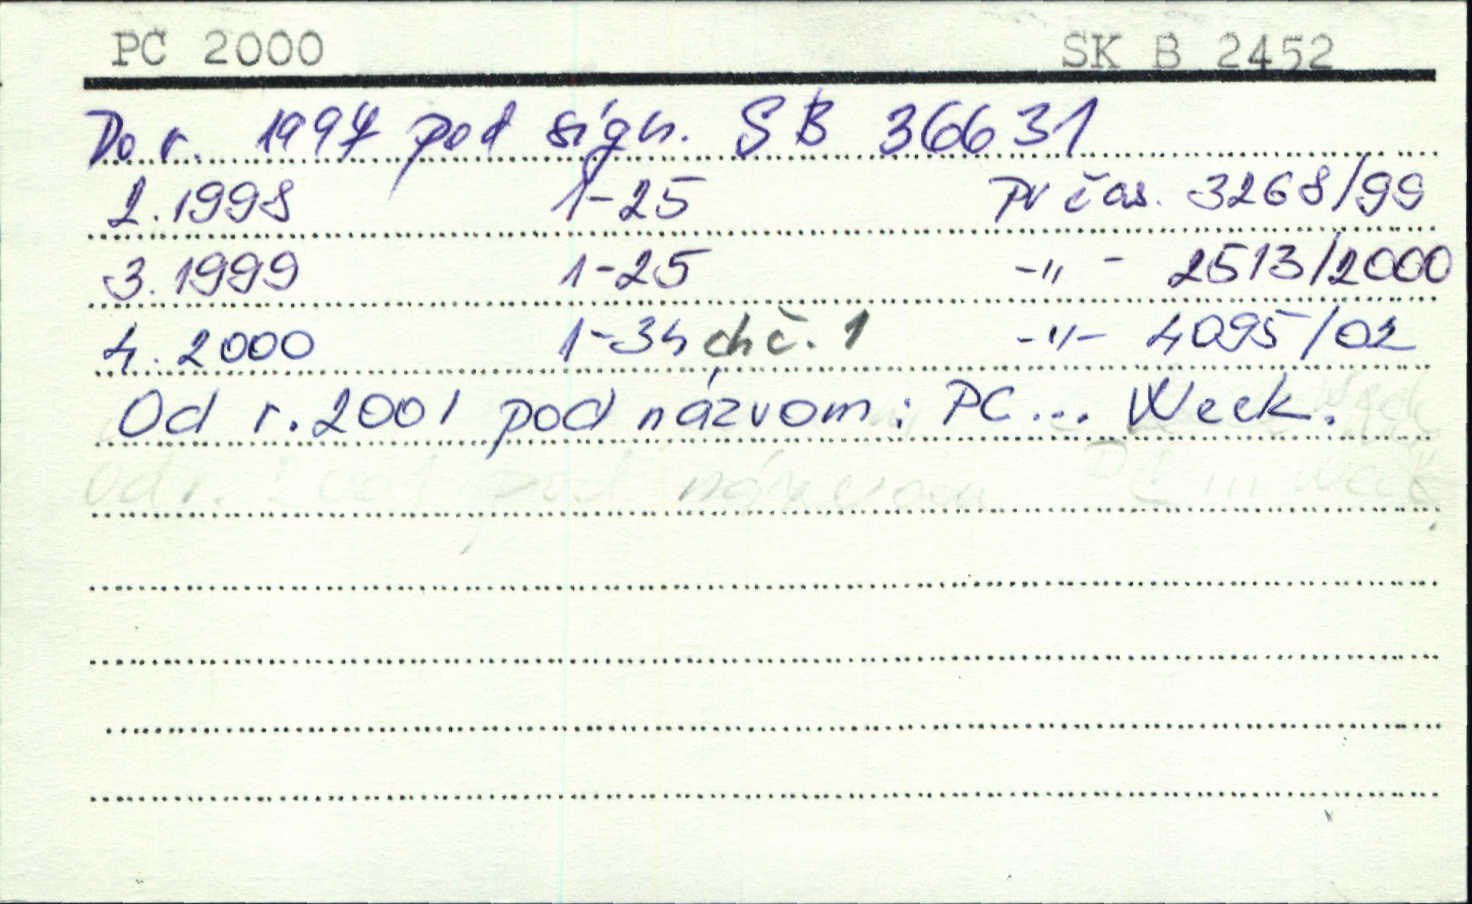 PC 2000 SK B 2452
Do r. 1997 pod sign. SB 36631
2. 1998 1-25 Pr čas. 3268/99
3. 1999 1-25 -"- 2513/2000
4. 2000 1-34 ch č. 1 -"- 4095/02
Od r. 2001 pod názvom: PC... Week.
Od r. 2001 pod názvom PC ... Week